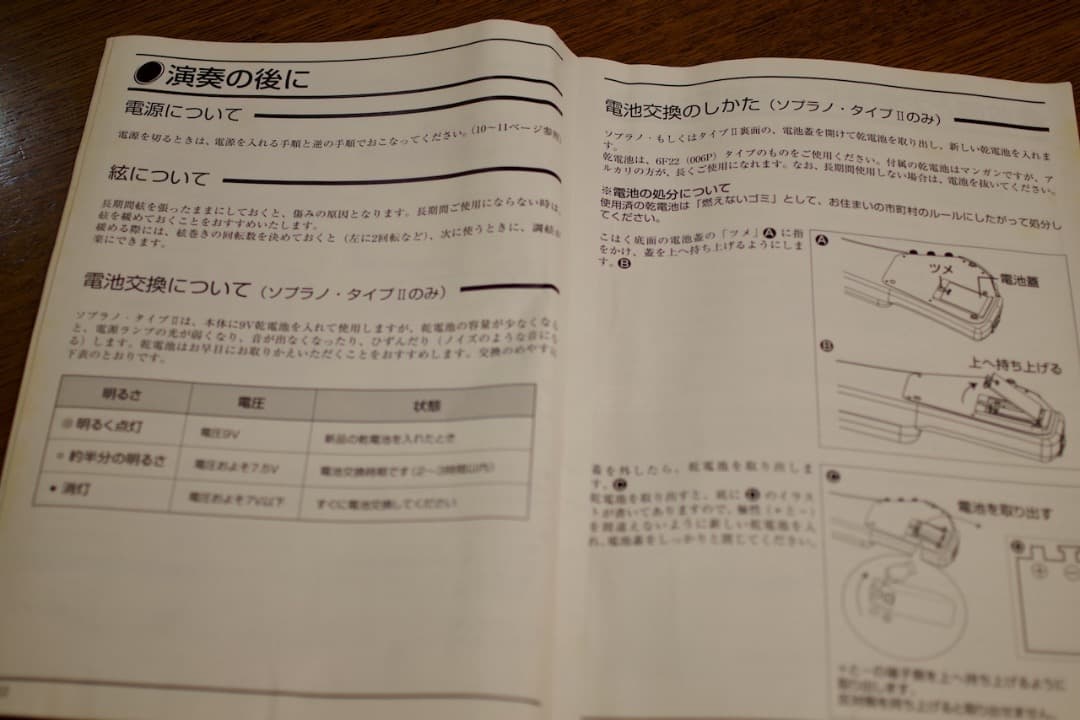 演奏の後に
電源について
電源を切るときは、電源を入れる手順と逆の手順でおこなってください。(10~11ページ参照
絃について
長期間絃を張ったままにしておくと、傷みの原因となります。長期間ご使用にならない時は、
絃を緩めておくことをおすすめいたします。
緩める際には、絃巻きの回転数を決めておくと(左に2回転など)、次に使うときに、調絃が
楽にできます。
電池交換について(ソプラノ・タイプⅡのみ)
ソプラノ・タイプⅡは、本体に9V乾電池を入れて使用しますが、乾電池の容量が少なくなる
と、電源ランプの光が弱くなり、音が出なくなったり、ひずんだり(ノイズのような音にな
る)します。乾電池はお早目にお取りかえいただくことをおすすめします。交換のめやすは
下表のとおりです。
明るさ 電圧 状態
明るく点灯 電圧9V 新品の乾電池を入れたとき
約半分の明るさ 電圧およそ7.5V 電池交換時期です(2~3時間以内)
消灯 電圧およそ7V以下 すぐに電池交換してください
電池交換のしかた(ソプラノ・タイプⅡのみ)
ソプラノ・もしくはタイプⅡ裏面の、電池蓋を開けて乾電池を取り出し、新しい乾電池を入れま
す。
乾電池は、6F22(006P)タイプのものをご使用ください。付属の乾電池はマンガンですが、ア
ルカリの方が、長くご使用になれます。なお、長期間使用しない場合は、電池を抜いてください。
※電池の処分について
使用済の乾電池は「燃えないゴミ」として、お住まいの市町村のルールにしたがって処分し
てください。
こはく底面の電池蓋の「ツメ」Aに指
をかけ、蓋を上へ持ち上げるようにしま
す。B
A
ツメ
電池蓋
B
上へ持ち上げる
蓋を外したら、乾電池を取り出しま
す。C
乾電池を取り出すと、底に のイラス
トが書いてありますので、極性(+と-)
を間違えないように新しい乾電池を入
れ、電池蓋をしっかりと閉じてください。
C
電池を取り出す
+ -
+と-の端子側を上へ持ち上げるように
取り出します。
反対側を持ち上げると取り出せません。